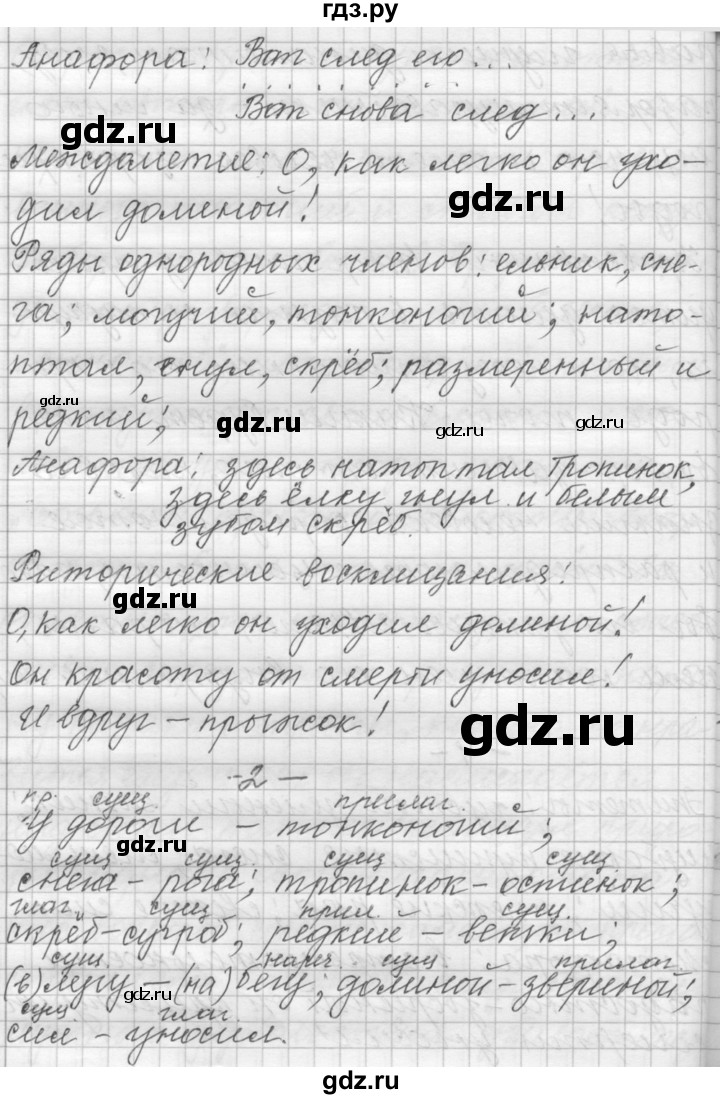 гдз.ру
Анафора: Вот след его...
Вот снова след...
gdz.ru
Междометие: О, как легко он ухо-
gdz.ru
дил долиной!
Ряды однородных членов: ельник, сне-
га; могучий, тонконогий; нато-
птал, гнул, скрёб; размеренный и
gdz.ru
редкий;
gdz.ru
gdz.ru
gdz.ru
Анафора: здесь натоптал тропинок,
здесь ёлку гнул и белым
зубом скрёб.
Риторические восклицания:
gdz.ru
О, как легко он уходил долиной!
Он красоту от смерти уносил!
И вдруг – прыжок!
gdz.ru
-2-
пр. сущ. прилаг.
У дороги – тонконогий;
gdz.ru
сущ сущ. сущ сущ.
снега – рога; тропинок – остинок;
глаг. сущ прил. сущ.
скрёб – сугроб; редкий – ветки;
сущ. нареч. сущ прилаг.
(в) лугу – (на) бегу; долиной – звериной;
gdz.ru
gdz.ru
сущ глаг.
сил – уносил.
gdz.ru